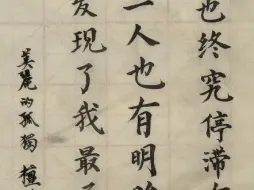 也终究停滞
一人也有明
发现了我最
吴苋的孤独